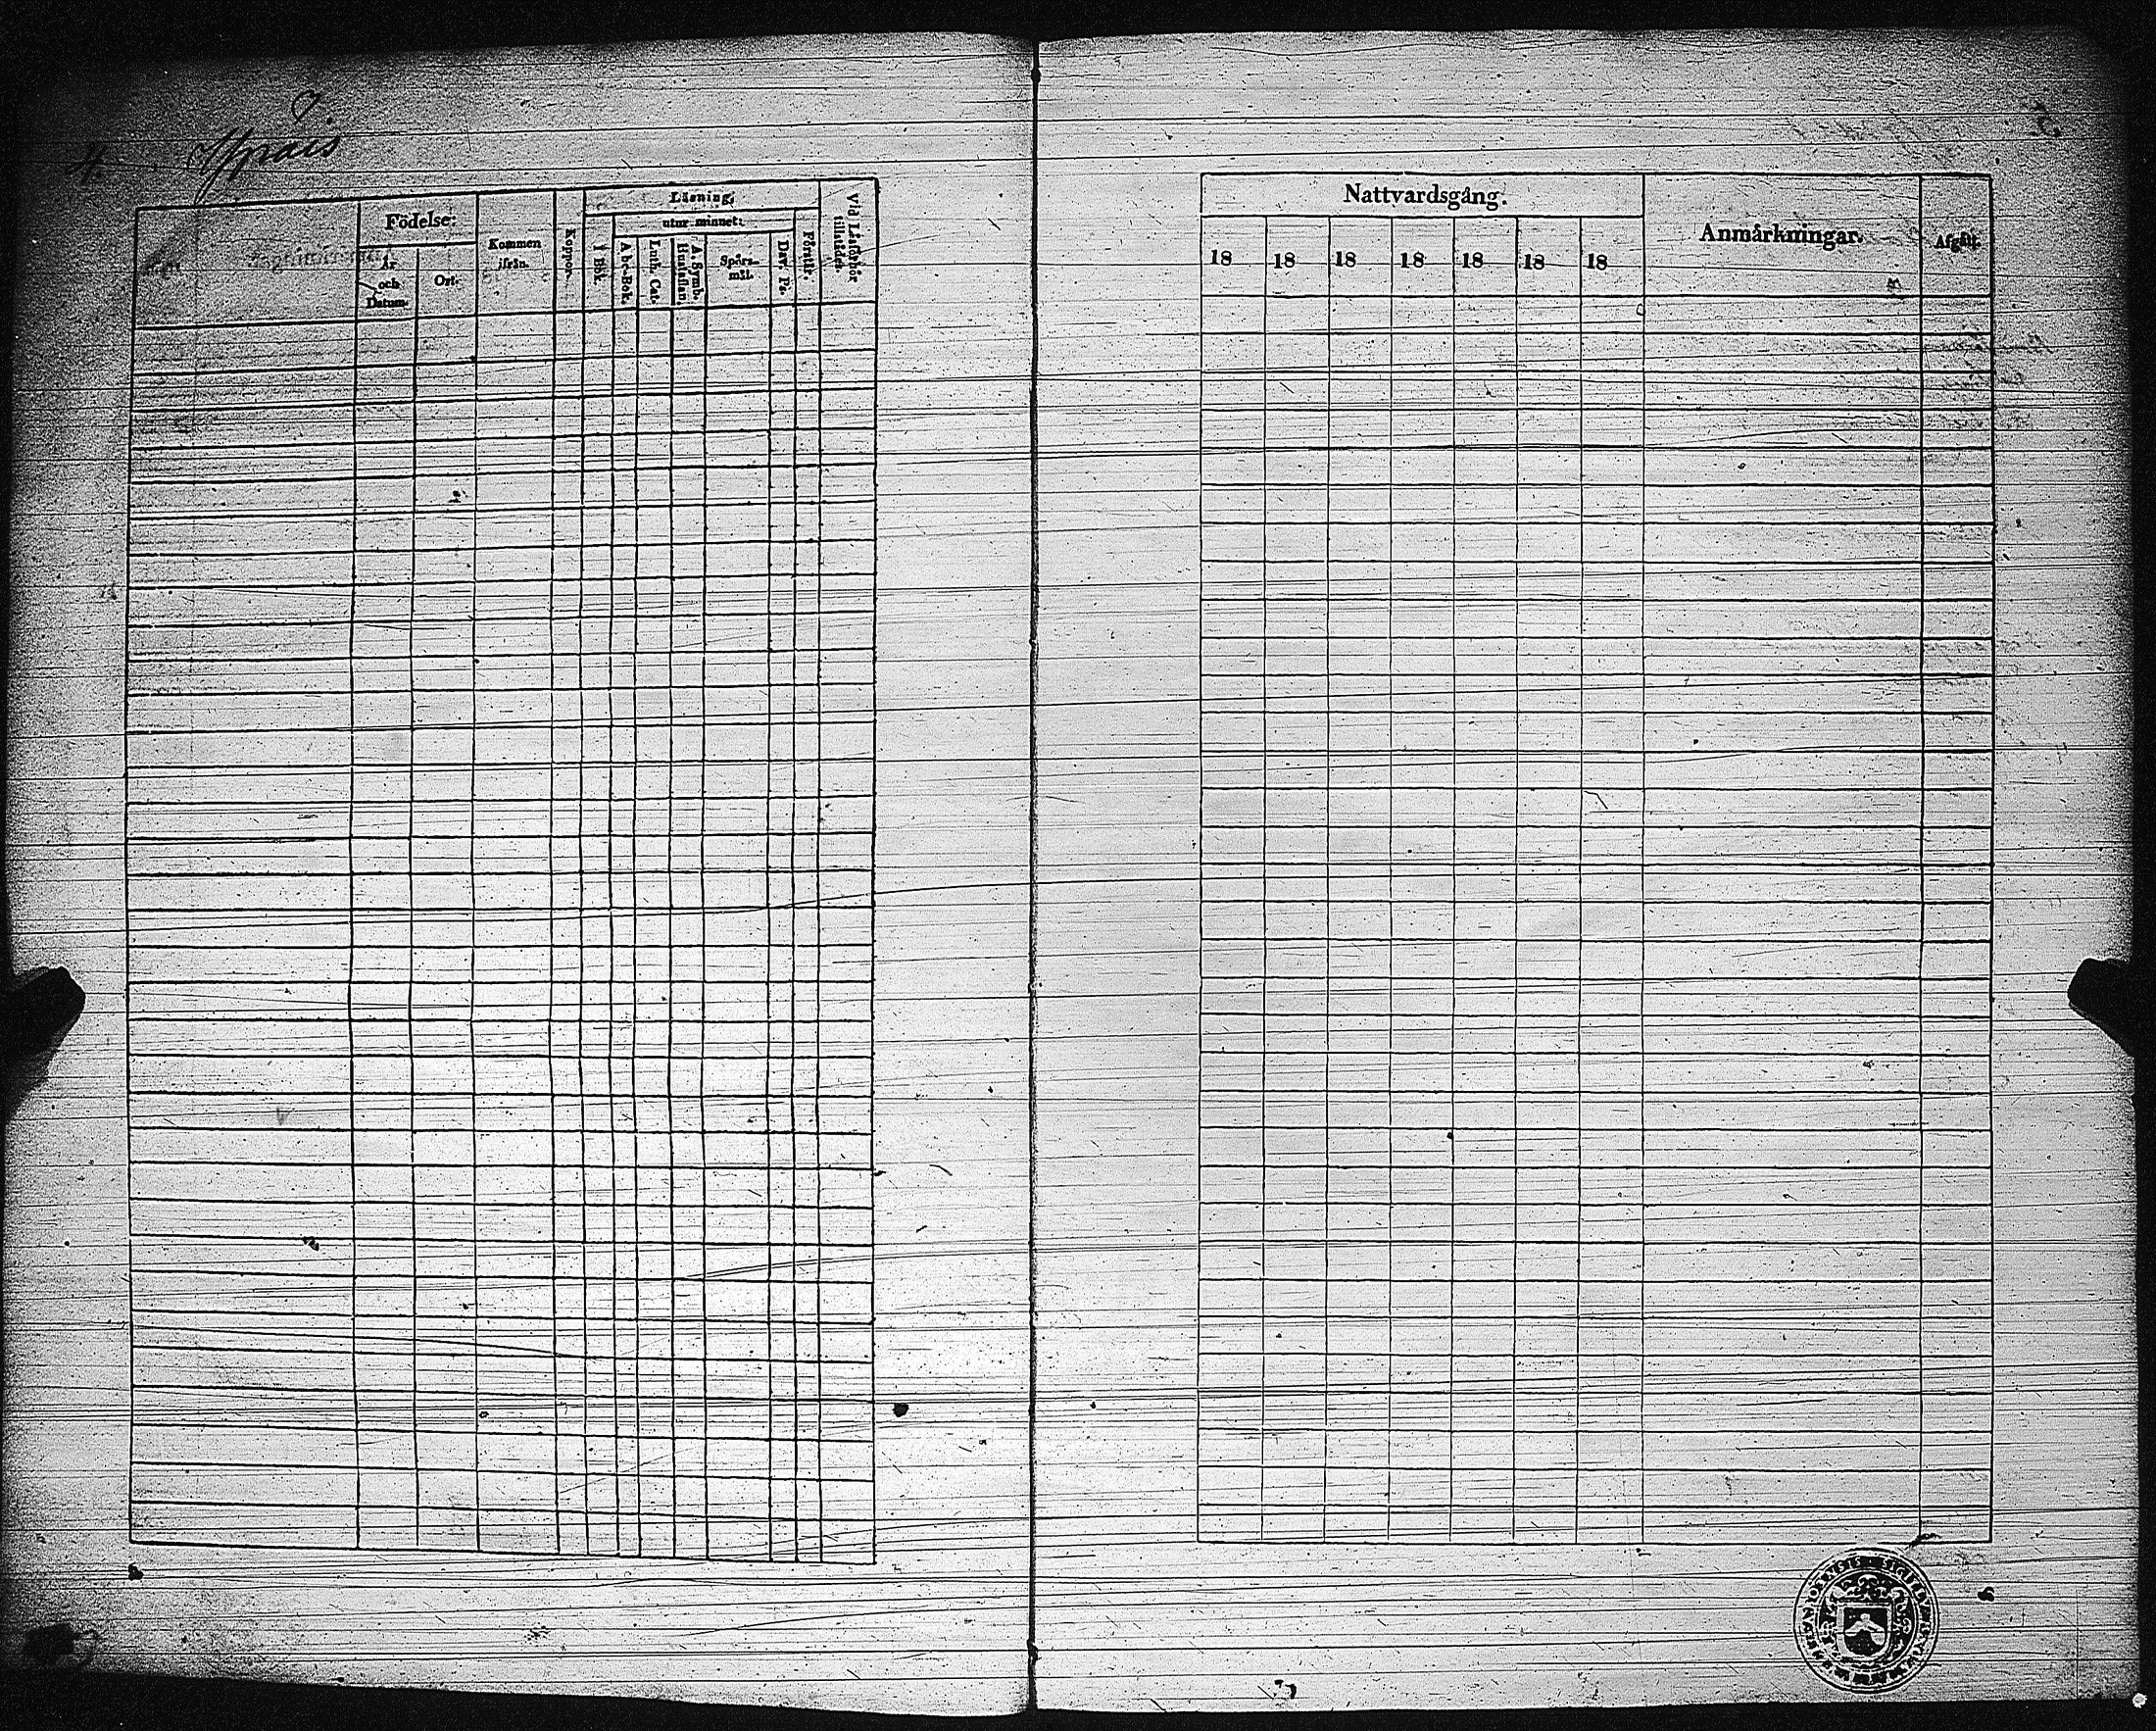 4.
5.
Läsning,
utur minnet:
Födelse:
År
och
Datum.
Ort.
Kommen
ifrån.
Koppor.
I Bok.
Abc-Bok.
Luth. Cat.
A. Symb.
Hustaflan
Spörs-
mål.
Dav. Ps.
Förstår.
Vid Läsförhör
tillstädes.
Nattvardsgång.
18 18 18 18 18 18 18
Anmärkningar.
Afgått.